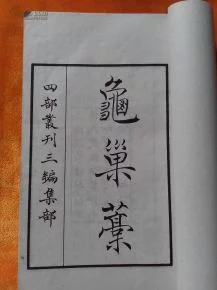 龜巢藁
四部叢刊三編集部